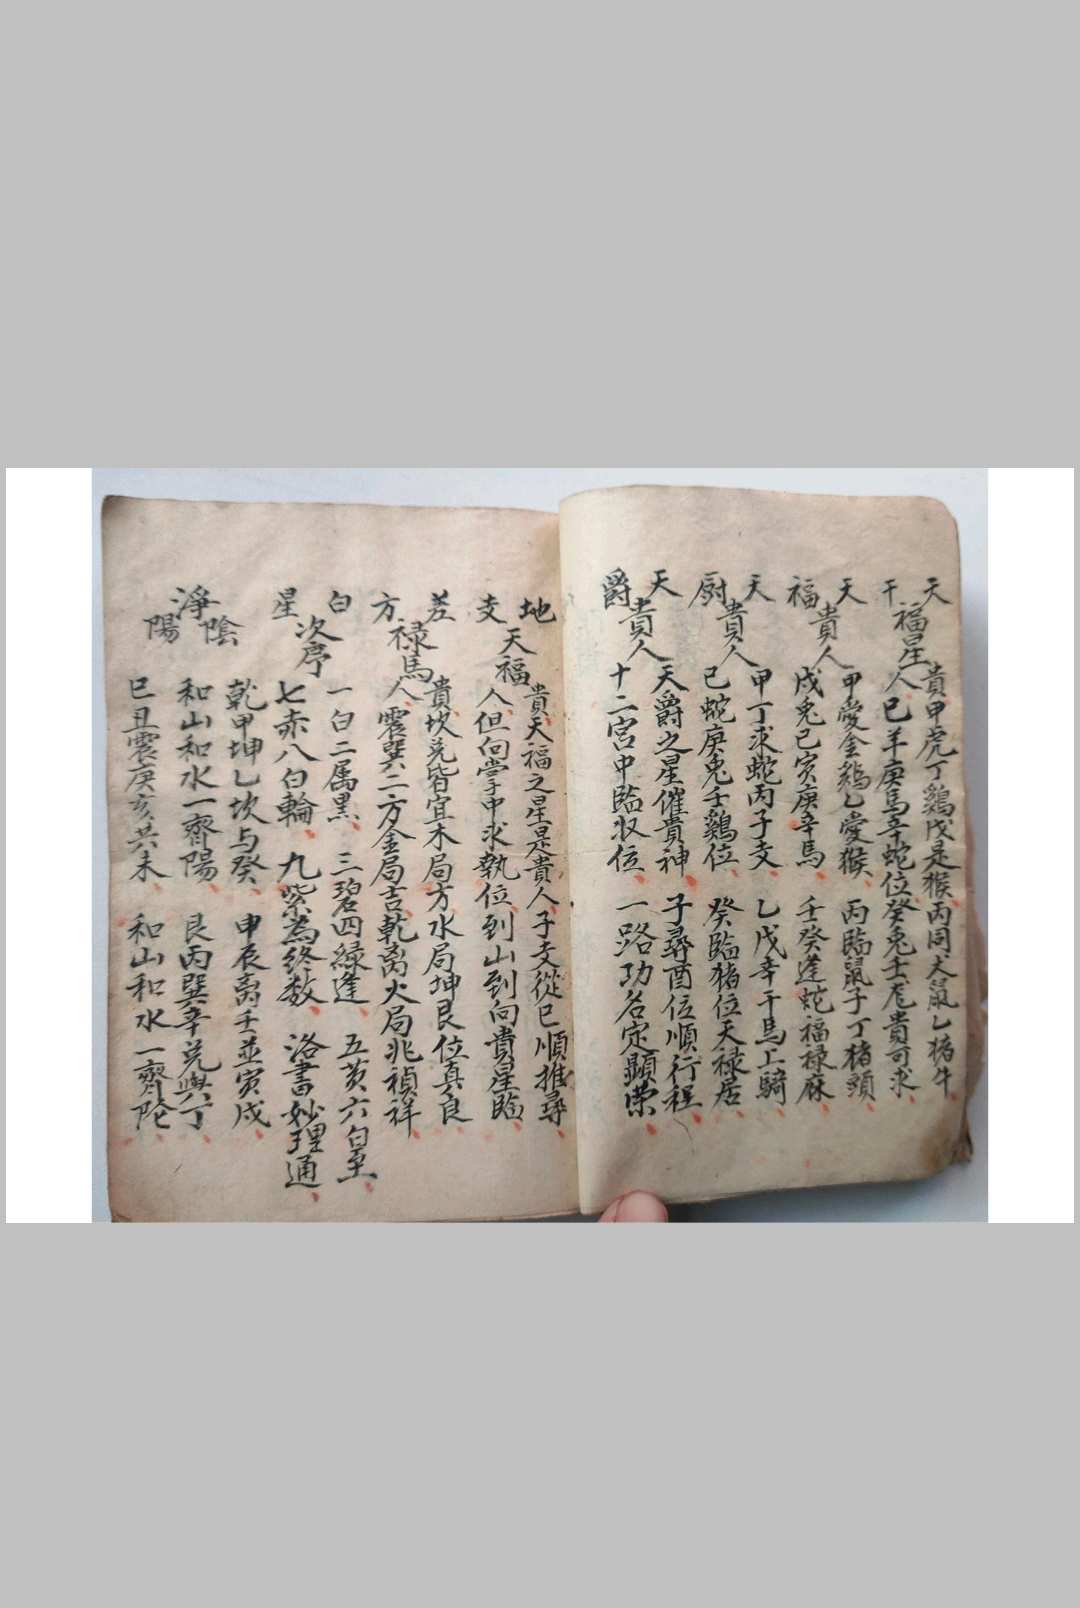 天干福星貴人
甲虎丁鷄戊是猴丙同犬鼠乙猪牛
己羊庚馬辛蛇位癸兔壬龙貴可求
天福貴人
甲愛金鷄乙愛猴 丙臨鼠子丁猪頭
戊兔己寅庚辛馬 壬癸逢蛇福禄麻
天厨貴人
甲丁求蛇丙子支 乙戊辛干馬上騎
己蛇庚兔壬鷄位 癸臨猪位天禄居
天爵貴人
天爵之星催貴神 子尋酉位順行程
十二宮中臨状位 一路功名定顯荣
地支天福貴人
天福之星是貴人子支從巳順推尋
但向掌中求執位到山到向貴星臨
差方禄馬貴人
坎兑皆宜木局方水局坤艮位真良
震巽二方金局吉乾离火局兆禎祥
白星次序
一白二属黑 三碧四緑逢 五黄六白星
七赤八白輪 九紫為終数 洛書妙理通
淨陰陽
乾甲坤乙坎与癸 申辰离壬並寅戌
和山和水一齊陽 艮丙巽辛兑與丁
巳丑震庚亥共未 和山和水一齊陰